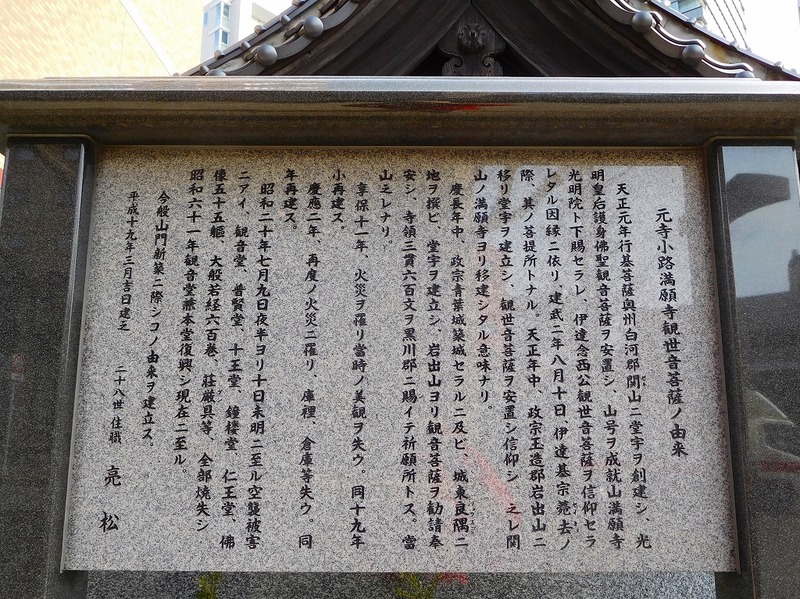 元寺小路満願寺観世音菩薩ノ由来
天正元年行基菩薩奥州白河郡関山ニ堂宇ヲ創建シ、光
明皇后護身佛聖観音菩薩ヲ安置シ、山号ヲ成就山満願寺
光明院ト下賜セラレ、伊達念西公観世音菩薩ヲ信仰セラ
レタル因縁ニ依リ、建武二年八月十日、伊達基宗薨去ノ
際、其ノ菩提所トナル。天正年中、政宗玉造郡岩出山ニ
移リ堂宇ヲ建立シ、観世音菩薩ヲ安置シ信仰シ 之レ関
山ノ満願寺ヨリ移建シタル意味ナリ。
慶長年中、政宗青葉城築城セラルニ及ビ、城東良隅ニ
地ヲ撰ビ、堂宇ヲ建立シ、岩出山ヨリ観音菩薩ヲ勧請奉
安シ、寺領三貫六百文ヲ黒川郡ニ賜イテ祈願所トス。當
山之レナリ。
享保十一年、火災ヲ羅リ當時ノ美観ヲ失ウ。同十九年
小再建ス。
慶應二年、再度ノ火災ニ羅リ、庫裡、倉庫等失ウ。同
年再建ス。
昭和二十年七月九日夜半ヨリ十日未明ニ至ル空襲被害
ニアイ、観音堂、普賢堂、十王堂、鐘楼堂、仁王堂、佛
像五十五軀、大般若経六百巻、荘厳具等、全部焼失シ
昭和六十一年観音堂兼本堂復興シ現在ニ至ル。
今般山門新築ニ際シコノ由来ヲ建立ス。
平成十九年三月吉日建之
二十八世住職 亮松